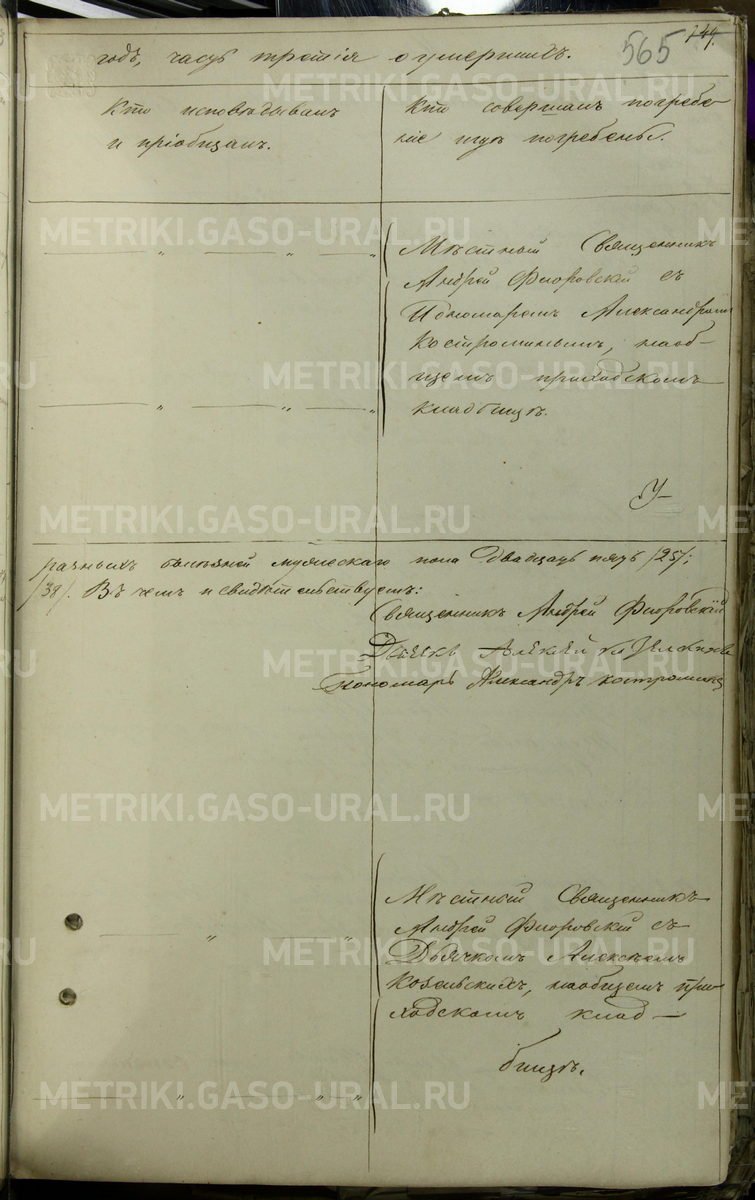 565 144.
годъ, часть третія о умершихъ.
Кто исповѣдывалъ
и пріобщалъ.
Кто совершалъ погребе-
ніе и гдѣ погребены.
Мѣстный Священникъ
Андрей Флоровскій съ
Пономаремъ Александромъ
Костроминымъ, на об-
щемъ приходскомъ
кладбищѣ.
разныхъ болѣзней мужескаго пола двадцать пять /25/;
/39/. Въ чемъ и свидѣтельствуемъ:
Священникъ Андрей Флоровскій
Дьячекъ Алексѣй
Пономарь Александръ Костроминъ
Мѣстный Священникъ
Андрей Флоровскій съ
Дьячкомъ Алексѣемъ
Козельскихъ, на общемъ при-
ходскомъ клад-
бищѣ.
METRIKI.GASO-URAL.RU